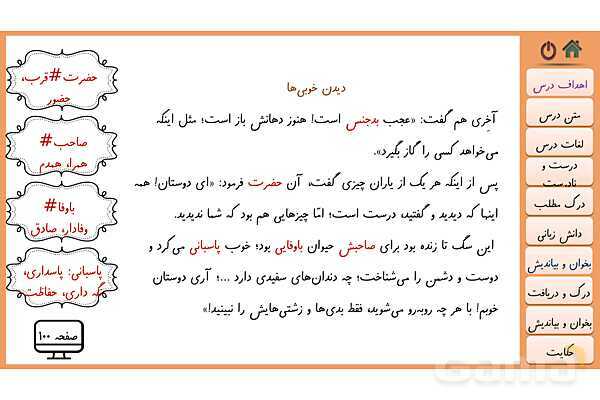 دیدن خوبی‌ها
آخِری هم گفت: «عجب بدجنس است! هنوز دهانش باز است؛ مثل اینکه
می‌خواهد کسی را گاز بگیرد».
پس از اینکه هر یک از یاران چیزی گفت، آن حضرت فرمود: «ای دوستان! همه
اینها که دیدید و گفتید، درست است؛ امّا چیزهایی هم بود که شما ندیدید.
این سگ تا زنده بود برای صاحبش حیوان باوفایی بود؛ خوب پاسبانی می‌کرد و
دوست و دشمن را می‌شناخت؛ چه دندان‌های سفیدی دارد ...؛ آری دوستان
خوبم! با هر چه روبه‌رو می‌شوید، فقط بدی‌ها و زشتی‌هایش را نبینید!»
اهداف درس
متن درس
لغات درس
درست و
نادرست
درک مطلب
دانش زبانی
بخوان و بیاندیش
درک و دریافت
بخوان و بیاندیش
حکایت
حضرت#قرب،
حضور
صاحب#
همراه، همدم
باوفا#
وفادار، صادق
پاسبانی: پاسداری،
نگه داری، حفاظت
صفحه ۱۰۰
Gama